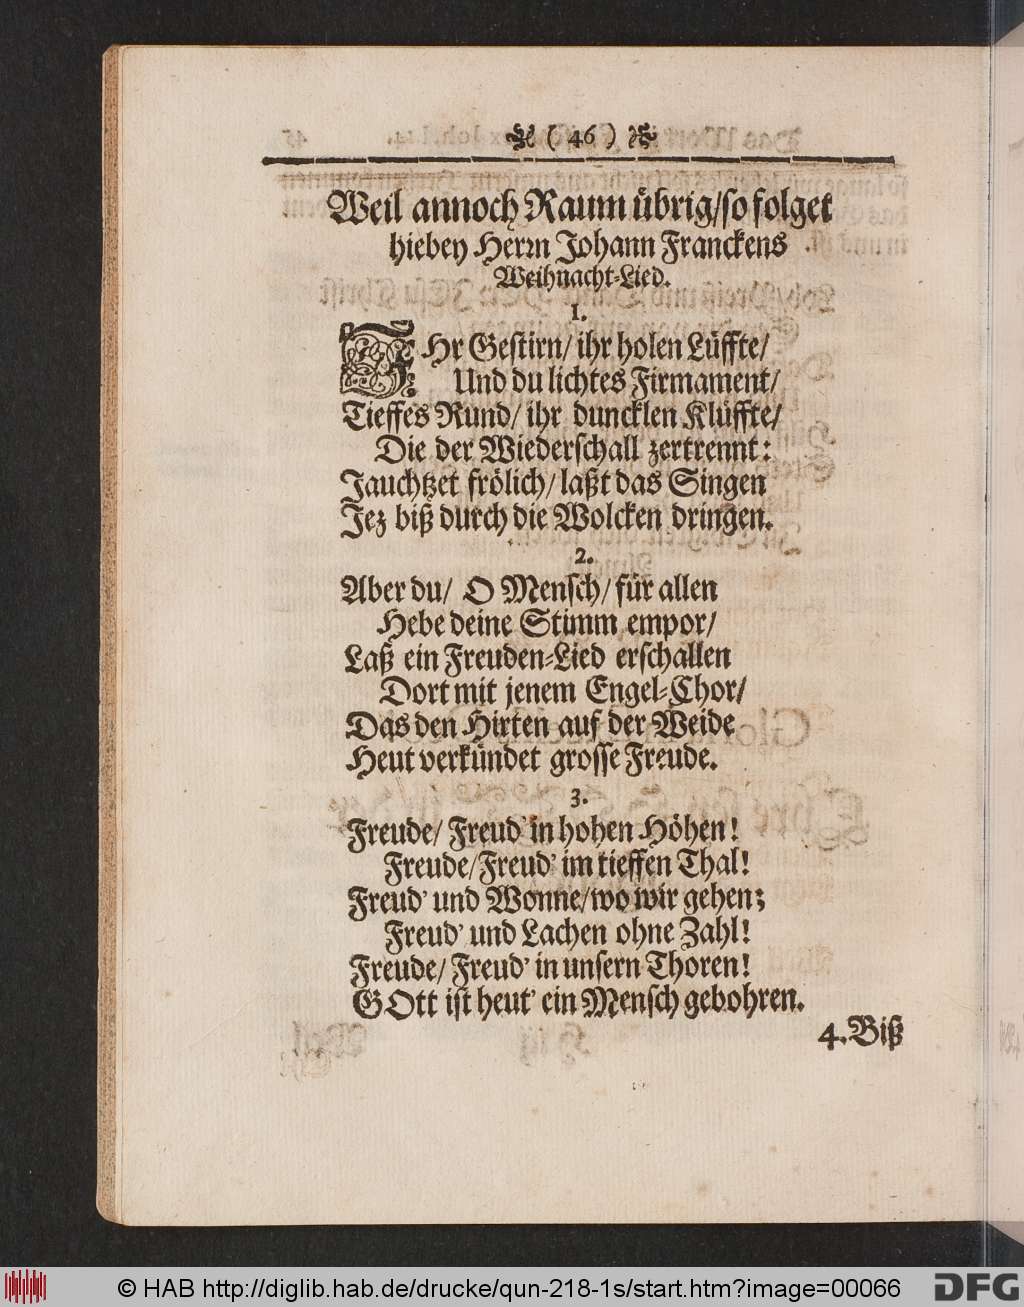 ( 46 )
Weil annoch Raum übrig/ so folget
hiebey Herrn Johann Franckens
Weihnacht-Lied.
1.
IHr Gestirn/ ihr holen Lüffte/
Und du lichtes Firmament/
Tieffes Rund/ ihr duncklen Klüffte/
Die der Wiederschall zertrennt:
Jauchtzet frölich/ laßt das Singen
Jez biß durch die Wolcken dringen.
2.
Aber du/ O Mensch/ für allen
Hebe deine Stimm empor/
Laß ein Freuden-Lied erschallen
Dort mit jenem Engel-Chor/
Das den Hirten auf der Weide
Heut verkündet grosse Freude.
3.
Freude/ Freud' in hohen Höhen!
Freude/ Freud' im tieffen Thal!
Freud' und Wonne/ wo wir gehen;
Freud' und Lachen ohne Zahl!
Freude/ Freud' in unsern Thoren!
GOtt ist heut' ein Mensch gebohren.
4. Biß
© HAB http://diglib.hab.de/drucke/qun-218-1s/start.htm?image=00066
DFG